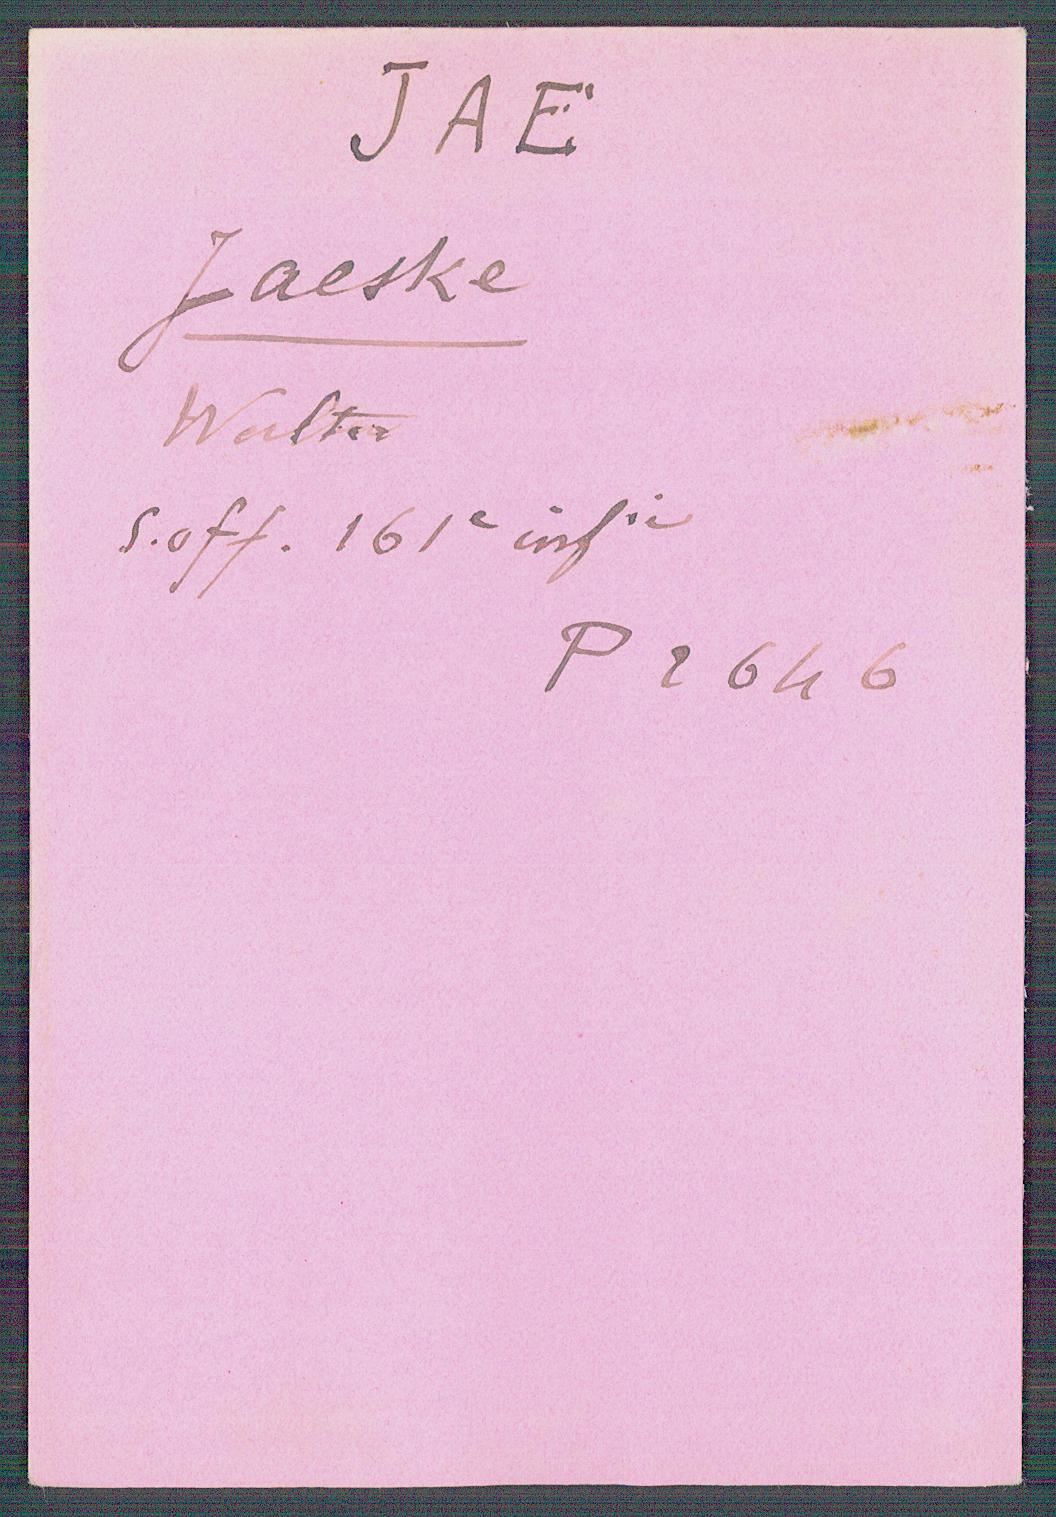 JAE
Jaeske
Walter
S.off. 161e infie
P 2646